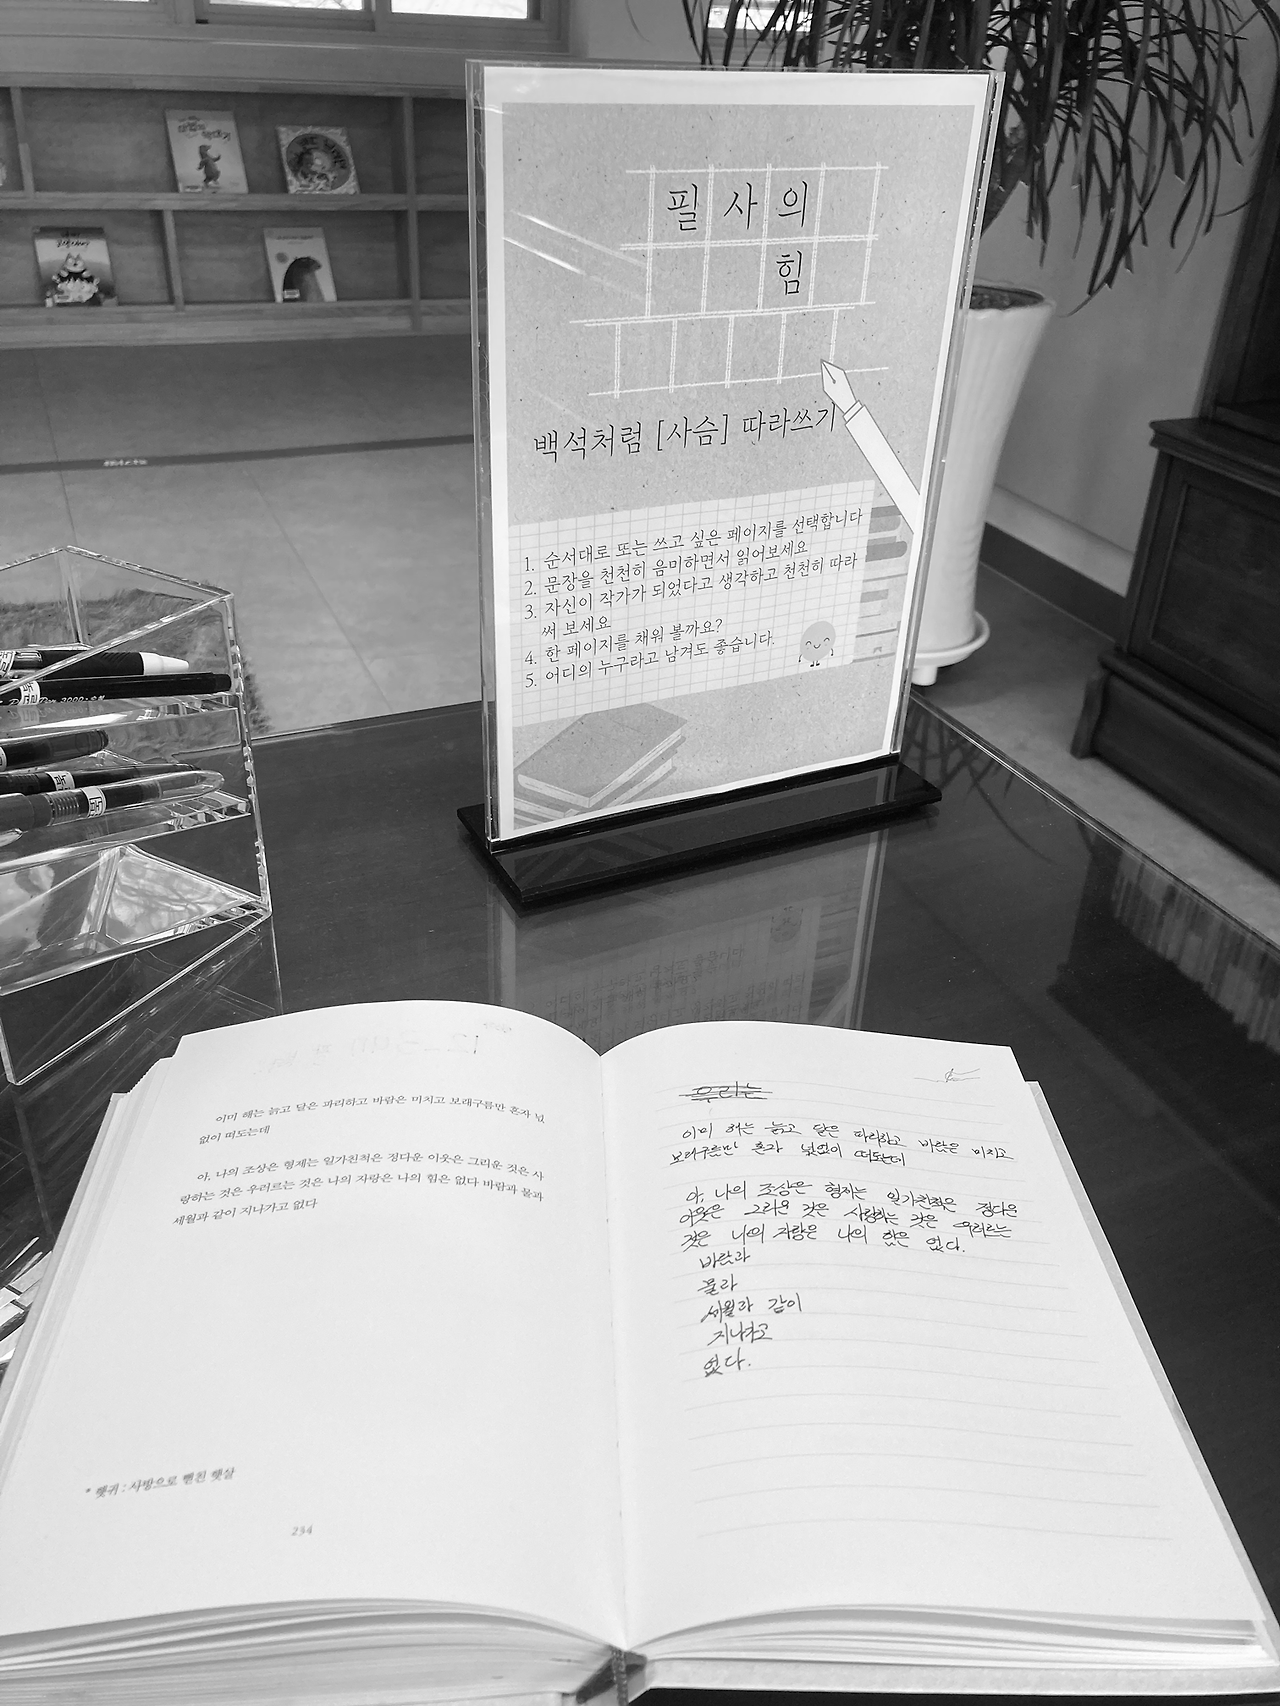 필사의
힘
백석처럼 [사슴] 따라쓰기
1. 순서대로 또는 쓰고 싶은 페이지를 선택합니다
2. 문장을 천천히 음미하면서 읽어보세요
3. 자신이 작가가 되었다고 생각하고 천천히 따라
써 보세요
4. 한 페이지를 채워 볼까요?
5. 어디의 누구라고 남겨도 좋습니다.
이미 해는 늙고 달은 파리하고 바람은 미치고 보래구름만 혼자 넋
없이 떠도는데
아, 나의 조상은 형제는 일가친척은 정다운 이웃은 그리운 것은 사
랑하는 것은 우러르는 것은 나의 자랑은 나의 힘은 없다 바람과 물과
세월과 같이 지나가고 없다
* 햇귀 : 사방으로 뻗친 햇살
234
우리는
이미 해는 늙고 달은 파리하고 바람은 미치고
보래구름만 혼자 넋없이 떠도는데
아, 나의 조상은 형제는 일가친척은 정다운
이웃은 그리운 것은 사랑하는 것은 우러르는
것은 나의 자랑은 나의 힘은 없다.
바람과
물과
세월과 같이
지나가고
없다.